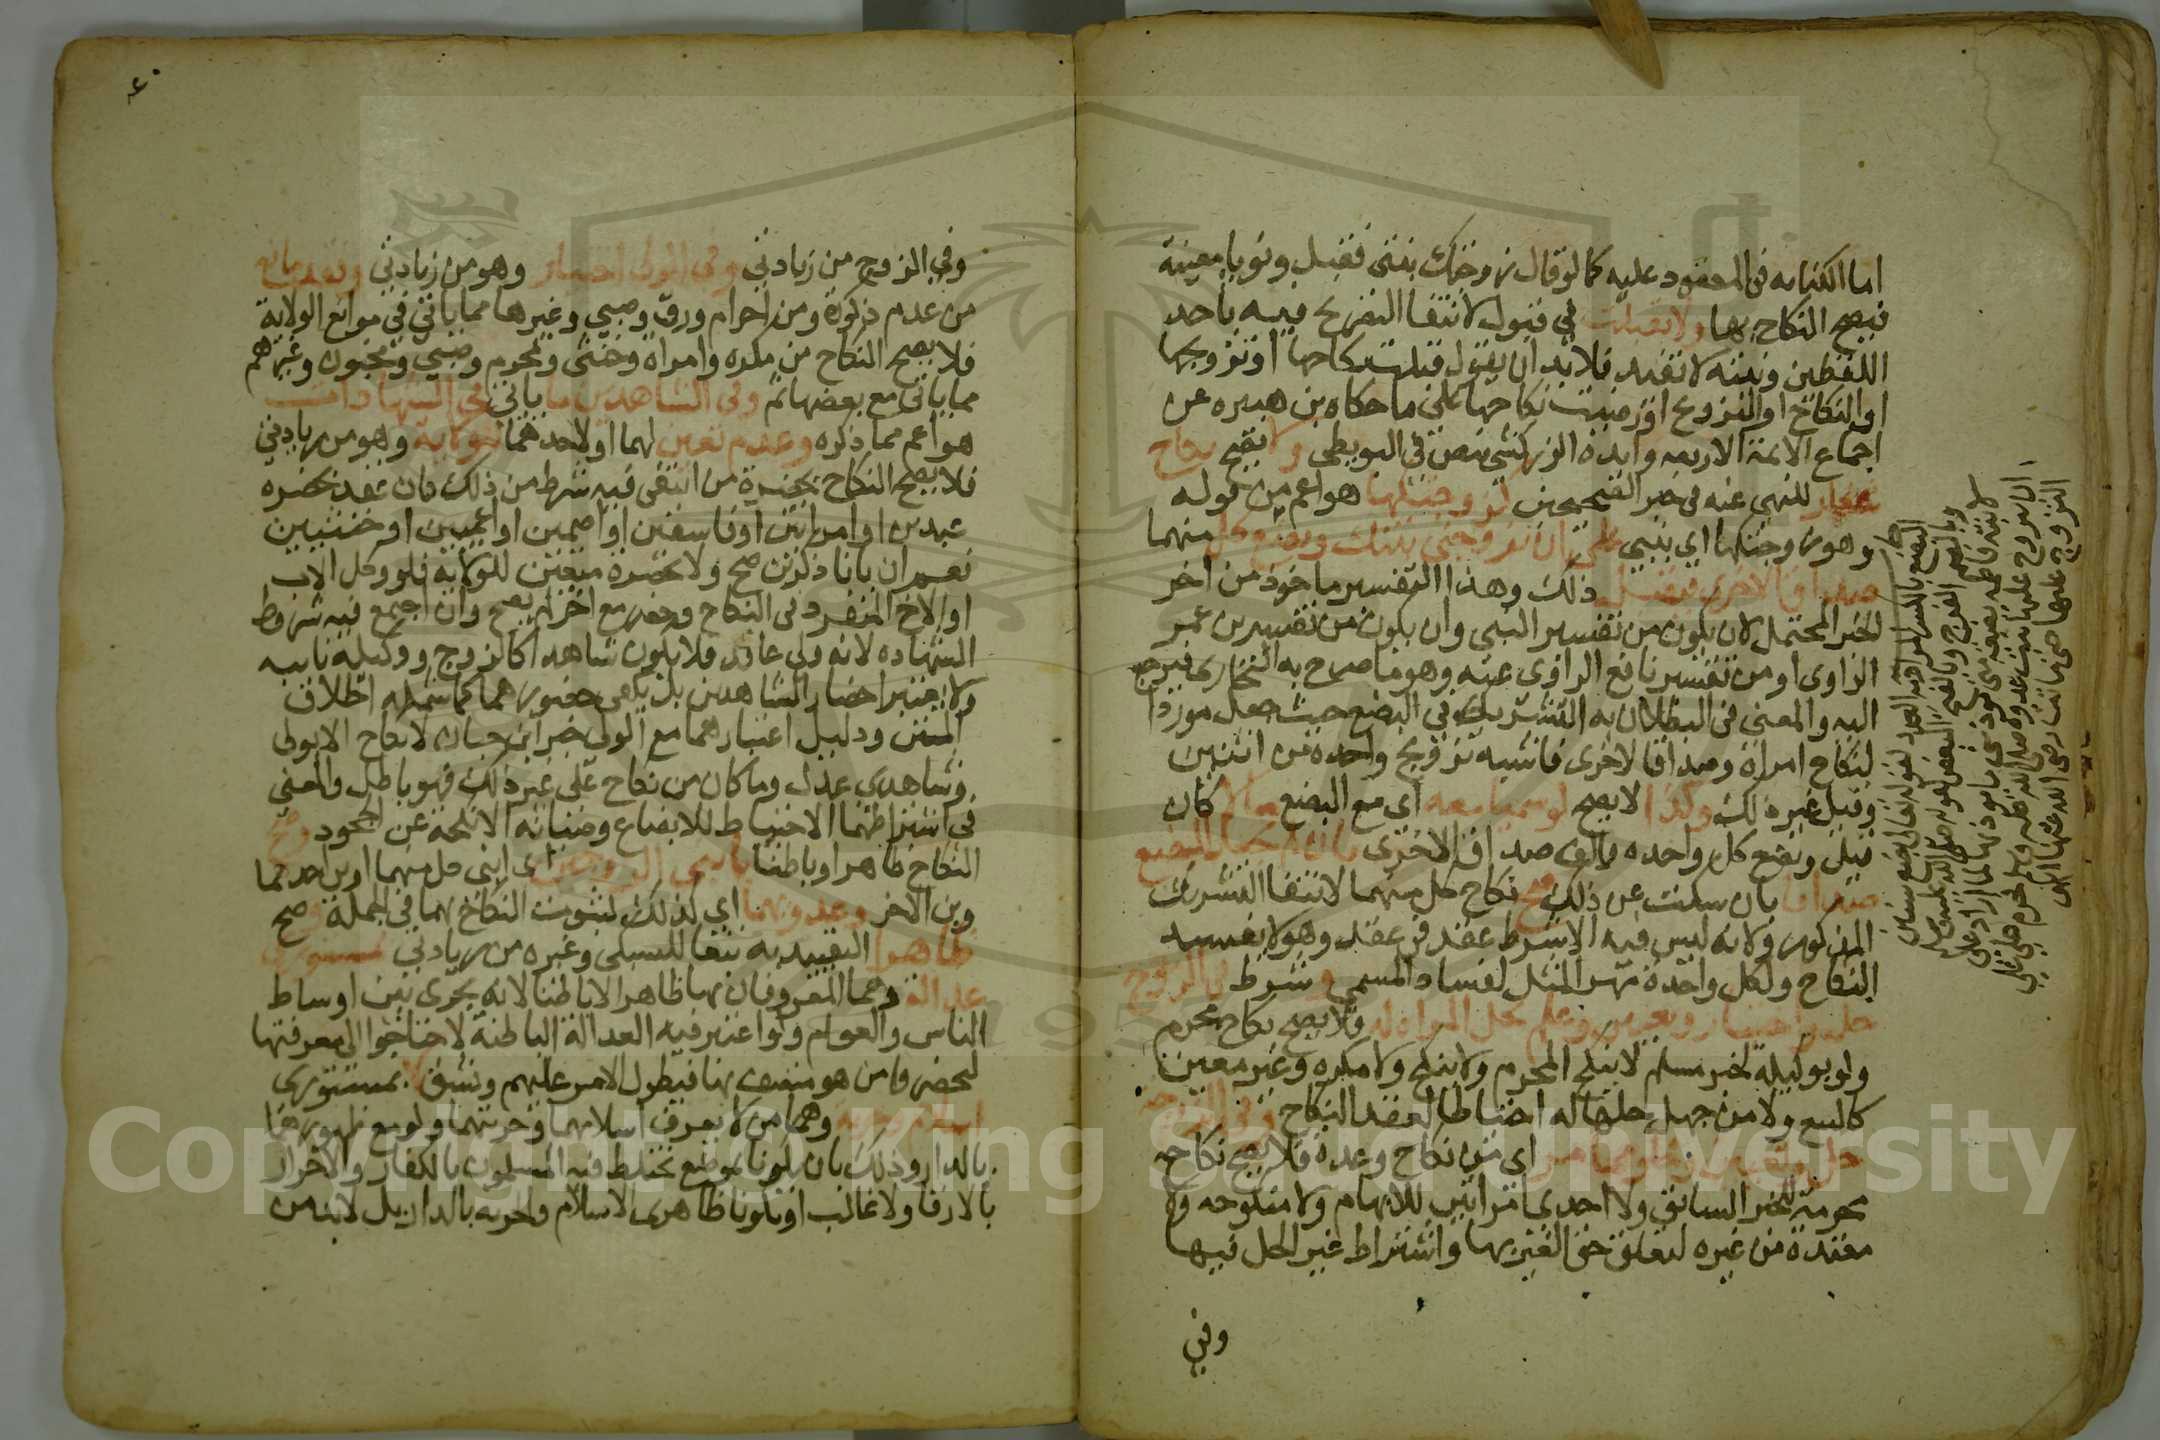 اما الكنايه في المعقود عليه كما لو قال زوجتك بنتي فقبل ونويا معينة
فيصح النكاح بها ولا بقبلت في قبول لانتفا التصريح فيه باحد
اللفظين ونيته لا تفيد فلا بد ان يقول قبلت نكاحها او تزويجها
او النكاح او التزويج او رضيت نكاحها على ما حكاه بن هبيره عن
اجماع الايمة الاربعه وايده الزركشي بنص في البويطي ولا يصح نكاح
شغار للنهي عنه في خبر الصحيحين كزوجتكها هو اعم من قوله
وهو زوجتكها اي بنتي على ان تزوجني بنتك وبضع كل منهما
صداق الاخرى فيقبل ذلك وهذا التفسير ماخوذ من اخر
الخبر المحتمل لان يكون من تفسير النبي وان يكون من تفسير بن عمر
الراوي او من تفسير نافع الراوي عنه وهو ما صرح به البخاري فيرجع
اليه والمعنى في البطلان به التشريك في البضع حيث جعل موردا
لنكاح امراة وصداقا لاخرى فاشبه تزويج واحدة من اثنين
وقيل غير ذلك وكذا لا يصح لو سميا معه اي مع البضع مالا كان
قيل وبضع كل واحده والف صداق الاخرى فان لم يجعل البضع
صداقا بان سكت عن ذلك صح نكاح كل منهما لانتفا التشريك
المذكور ولانه ليس فيه الا شرط عقد في عقد وهو لا يفسد
النكاح ولكل واحدة مهر المثل لفساد المسمى وشرط في الزوج
حل واختيار وتعيين وعلم بحل المراه له فلا يصح نكاح محرم
ولو بوكيله لخبر مسلم لا ينكح المحرم ولا ينكح ولا مكره وغير معين
كالبيع ولا من جهل حلها له احتياطا لعقد النكاح وفي الزوجة
حل وتعيين وخلو مما مر اي من نكاح وعدة فلا يصح نكاح
محرمة للخبر السابق ولا احدى امراتين للابهام ولا منكوحه ولا
معتدة من غيره لتعلق حق الغير بها واشتراط غير الحل فيها
وفي
وفي الزوج من زيادتي وفي الولي اختيار وهو من زيادتي وفقد مانع
من عدم ذكورة ومن احرام ورق وصبي وغيرها مما ياتي في موانع الولاية
فلا يصح النكاح من مكره وامراة وخنثى ومحرم وصبي ومجنون وغيرهم
مما ياتي مع بعضها ثم وفي الشاهدين ما ياتي في الشهادات
هو اعم مما ذكره وعدم تعين لهما او لاحدهما للولاية وهو من زيادتي
فلا يصح النكاح بحضرة من انتفى فيه شرط من ذلك كان عقد بحضره
عبدين او امراتين او فاسقين او اصمين او اعميين او خنثيين
نعم ان بانا ذكرين صح ولا بحضرة متعين للولايه فلو وكل الاب
او الاخ المنفرد في النكاح وحضر مع اخر لم يصح وان اجتمع فيه شروط
الشهاده لانه ولي عاقد فلا يكون شاهدا كالزوج ووكيله نايبه
ولا يعتبر احضار الشاهدين بل يكفي حضورهما كما شمله اطلاق
المتن ودليل اعتبارهما مع الولي خبر ابن حبان لا نكاح الا بولي
وشاهدي عدل وما كان من نكاح على غير ذلك فهو باطل والمعنى
في اشتراطهما الاحتياط للابضاع وصيانه الانكحة عن الجحود وصح
النكاح ظاهرا وباطنا بابني الزوجين اي ابني كل منهما او بن احدهما
وبن الاخر وعدويهما اي كذلك لثبوت النكاح بهما في الجملة وصح
ظاهرا التقييد به تبعا للسبكي وغيره من زيادتي بمستوري
عدالة وهما المعروفان بها ظاهرا لا باطنا لانه يجرى بين اوساط
الناس والعوام ولو اعتبر فيه العدالة الباطنة لاحتاجوا الى معرفتها
ليحضروا من هو متصف بها فيطول الامر عليهم ويشق لا بمستوري
اسلام وحرية وهما من لا يعرف اسلامهما وحريتهما ولو مع ظهورهما
بالدار وذلك بان يكونا بموضع يختلط فيه المسلمون بالكفار والاحرار
بالارقا ولا غالب او يكونا ظاهري الاسلام والحريه بالدار بل لابد من
٤٠
Copyright © King Saud University
1957